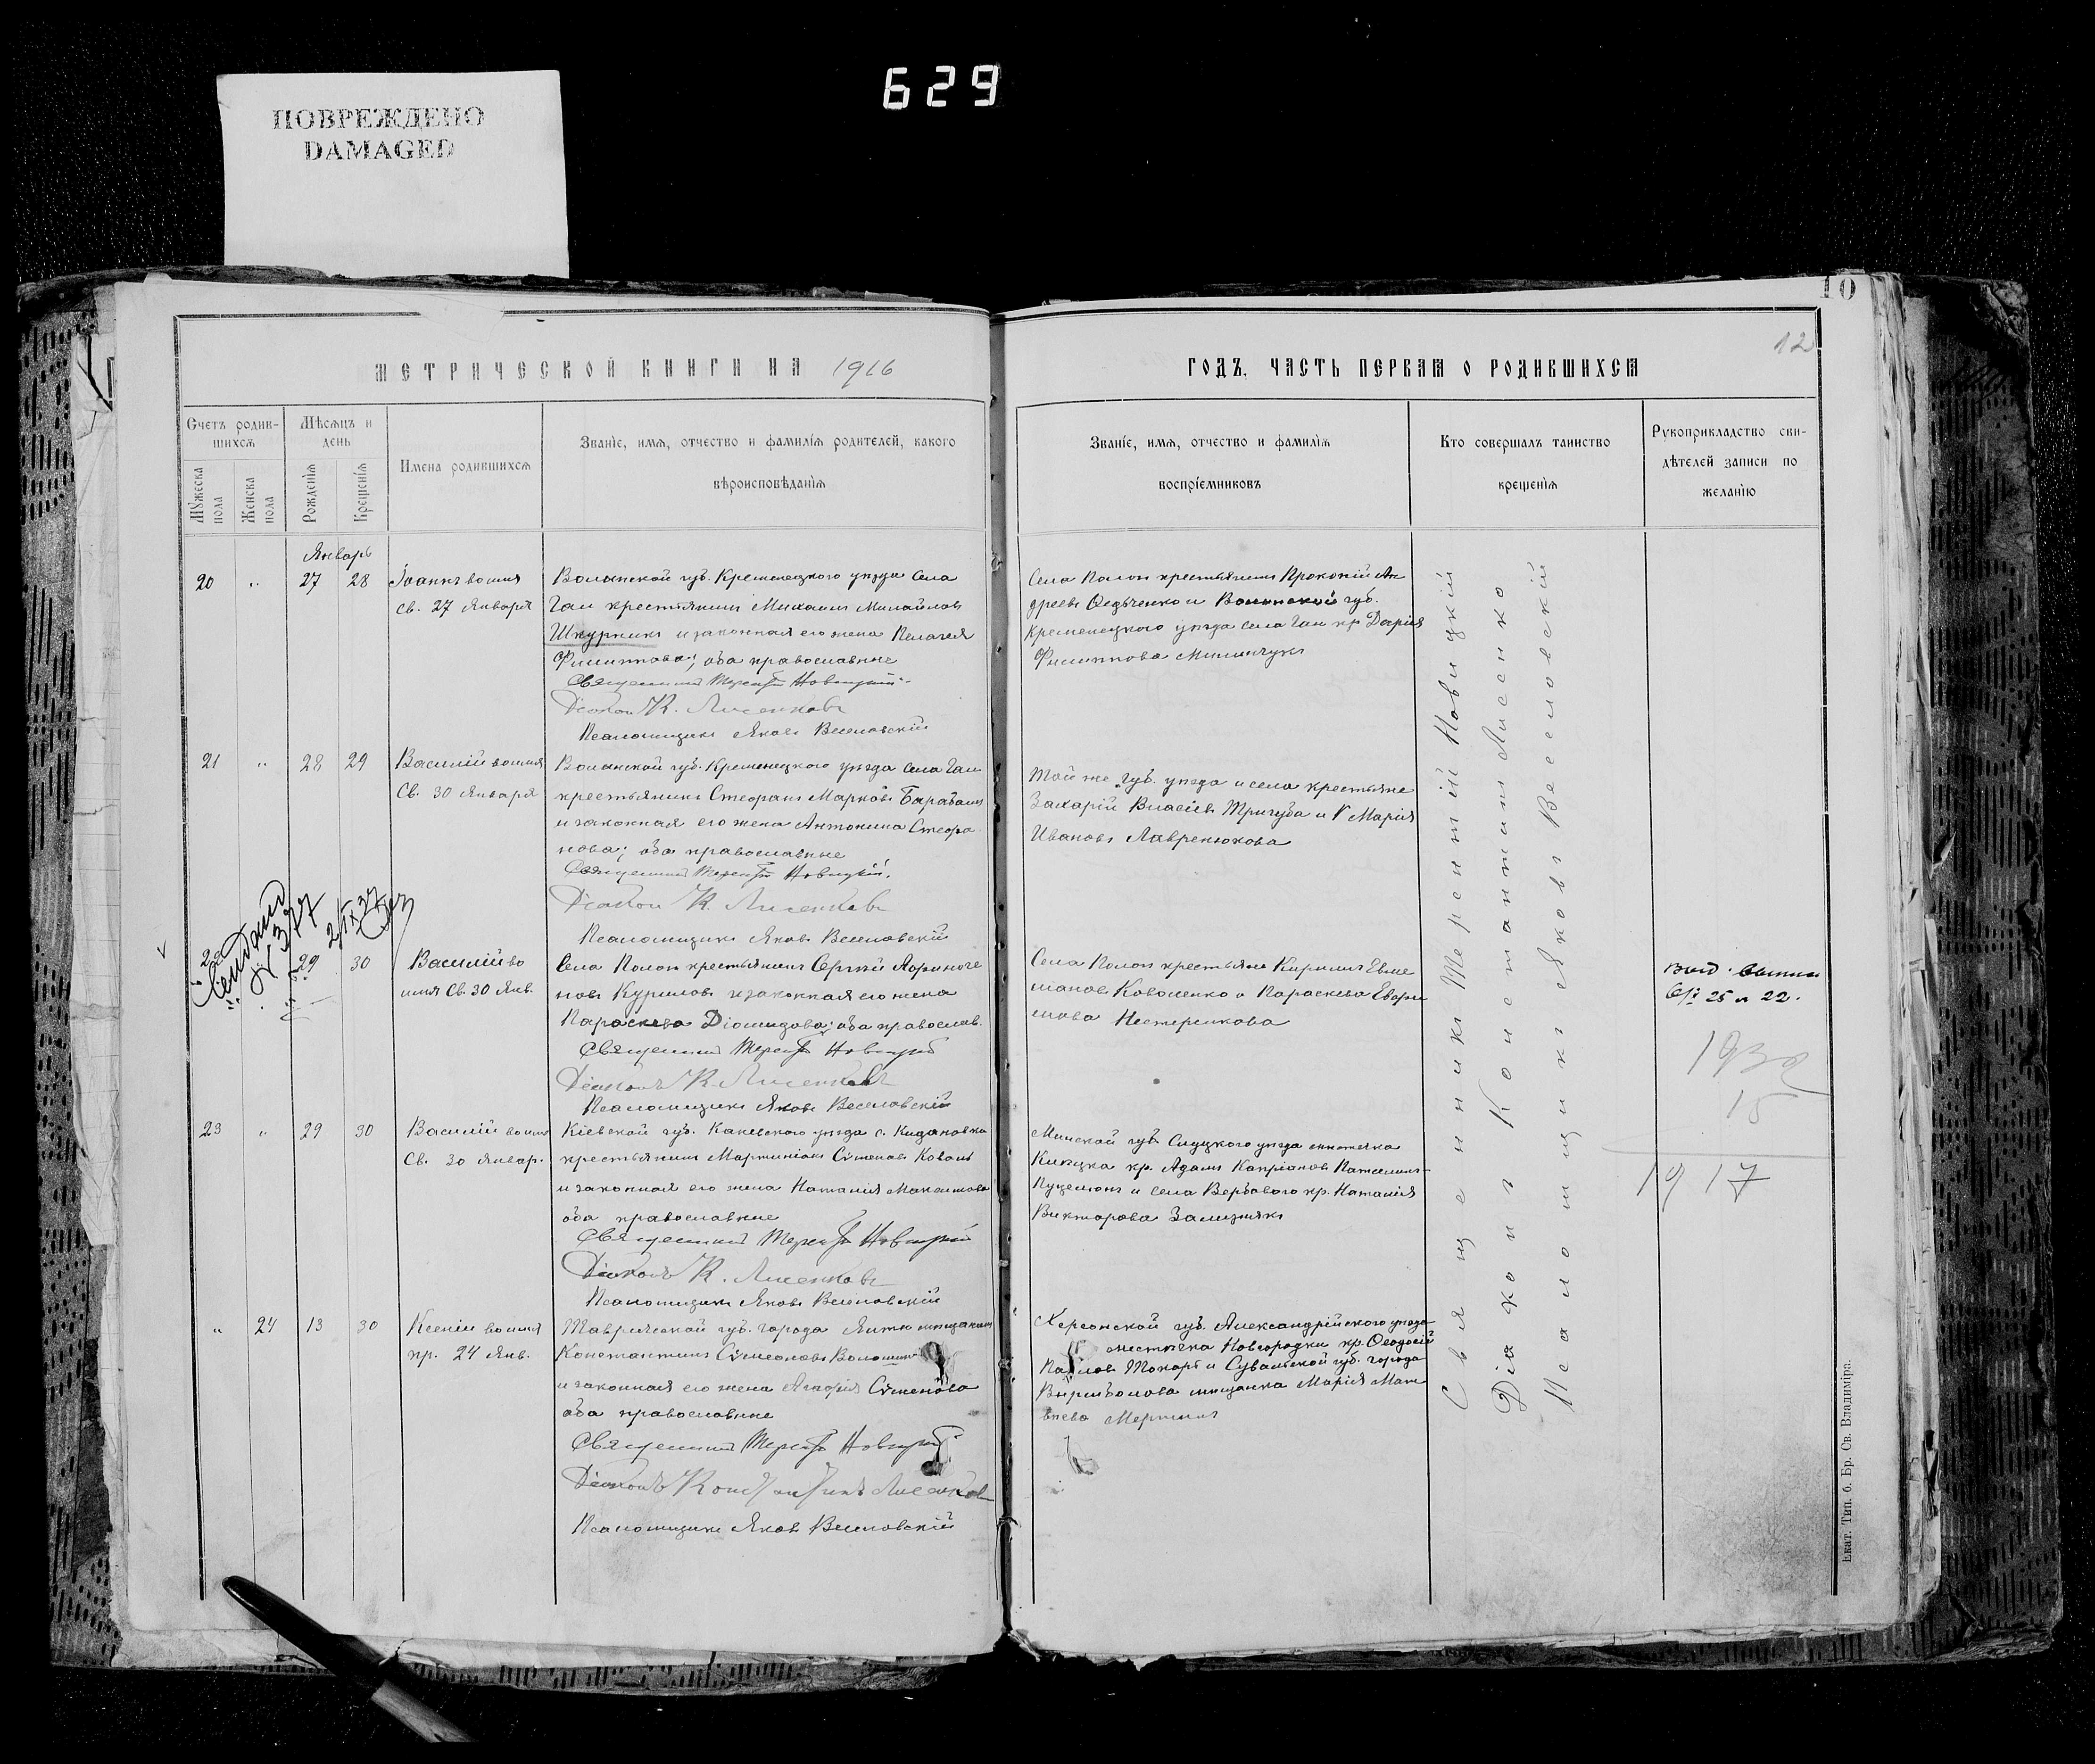 629
ПОВРЕЖДЕНО
DAMAGED
10
12
МЕТРИЧЕСКОЙ КНИГИ НА 1916
ГОДЪ, ЧАСТЬ ПЕРВАЯ О РОДИВШИХСЯ
Счетъ родив-
шихся
Мужеска
пола
Женска
пола
Мѣсяцъ и
день
Рожденія
Крещенія
Имена родившихся
Званіе, имя, отчество и фамилія родителей, какого
вѣроисповѣданія
Званіе, имя, отчество и фамилія
воспріемниковъ
Кто совершалъ таинство
крещенія
Рукоприкладство сви-
дѣтелей записи по
желанію
Январь
20 " 27 28
Іоаннъ во имя
св. 27 Января
Волынской губ. Кременецкого уѣзда села
Гаи крестьянинъ Михаилъ Михайловъ
Шкурникъ и законная его жена Пелагея
Филиппова; оба православные
Священникъ Терентій Новицкій
Діаконъ К. Лисенковъ
Псаломщикъ Яковъ Веселовскій
Села Попои крестьянинъ Прокопій Ан
дреевъ Федченко и Волынской губ.
Кременецкого уѣзда села Гаи кр. Дарія
Филиппова
21 " 28 29
Василій во имя
Св. 30 Января
Волынской губ. Кременецкого уѣзда села Гаи
крестьянинъ Стефанъ Марковъ Барабашъ
и законная его жена Антонина Стефа
нова; оба православные
Священникъ Терентій Новицкій.
Діаконъ К. Лисенковъ
Псаломщикъ Яковъ Веселовскій
Той же губ. уѣзда и села крестьяне
Захарій Власіевъ Тригуба и Марія
Иванова Лавренюкова
N 377
22 " 29 30
Василій во
имя Св. 30 Янв.
Села крестьянинъ Сергѣй
новъ Куриловъ и законная его жена
Параскева Діомидова; оба православ.
Священникъ Терентій Новицкій
Діаконъ К. Лисенковъ
Псаломщикъ Яковъ Веселовскій
Села крестьяне Кириллъ Евме
Коваленко и Параскева
Нестеренкова
25 и 22.
15
19 17
23 " 29 30
Василій во имя
Св. 30 Январ.
Кіевской губ. Каневского уѣзда с. Кидановки
крестьянинъ Мартиніанъ Сѵмеоновъ Коваль
и законная его жена Наталія Максимова
оба православные
Священникъ Терентій Новицкій
Діаконъ К. Лисенковъ
Псаломщикъ Яковъ Веселовскій
Минской губ. Слуцкого уѣзда мѣстечка
кр. Адамъ
и села Вербового кр. Наталія
Викторова Зализнякъ
" 24 13 30
Ксенія во имя
пр. 24 Янв.
Таврической губ. города Ялты мѣщанинъ
Константинъ Сѵмеоновъ
и законная его жена Сѵмеонова
оба православные
Священникъ Терентій Новицкій
Діаконъ Константинъ Лисенковъ
Псаломщикъ Яковъ Веселовскій
Херсонской губ. Александрійского уѣзда
мѣстечка Новгородки кр. Ѳеодосій
Павловъ Токарь и Сувалкской губ. города
мѣщанка Марія Мат
вѣева
Священникъ Терентій Новицкій
Діаконъ Константинъ Лисенко
Псаломщикъ Яковъ Веселовскій
Екат. Тип. б. Бр. Св. Владиміра.